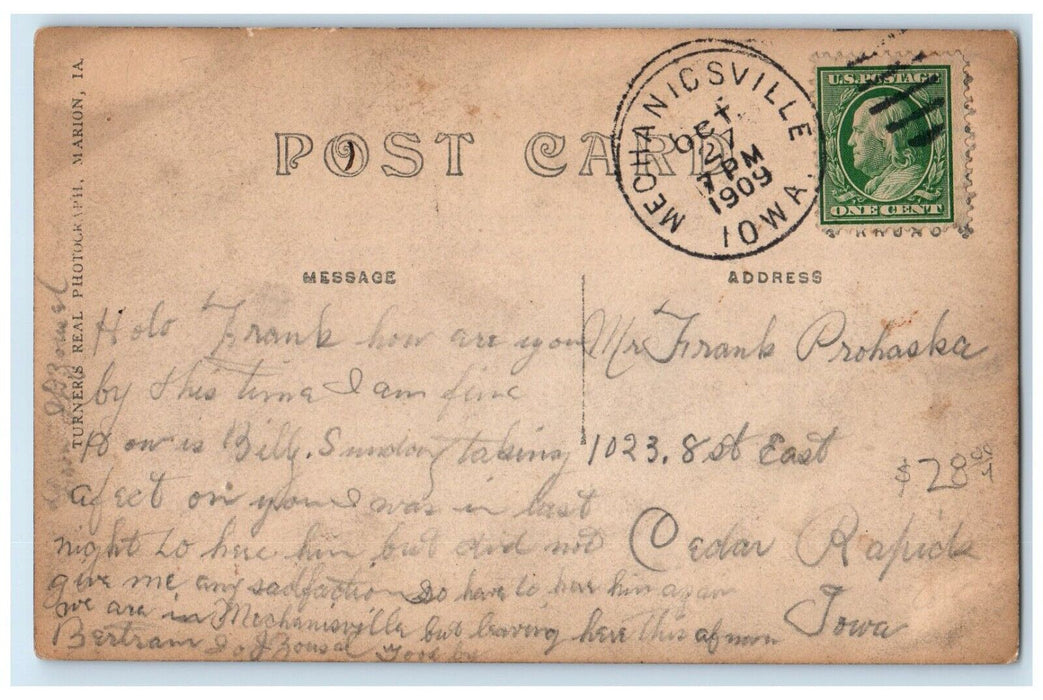 POST CARD
MECHANICSVILLE
OCT
27
7 PM
1909
IOWA.
U.S. POSTAGE
ONE CENT
TURNER'S REAL PHOTOGRAPH, MARION, IA.
MESSAGE
ADDRESS
Holo Frank how are you
by this time I am fine
How is Billy. Sunday taking
afect on you I was in last
night to here him but did not
give me any sadfaction so have to here him agan
we are in Mechanisville but leaving here this afnon
Bertram
Mr Frank Prohaska
1023. 8 st East
Cedar Rapids
Iowa
$28